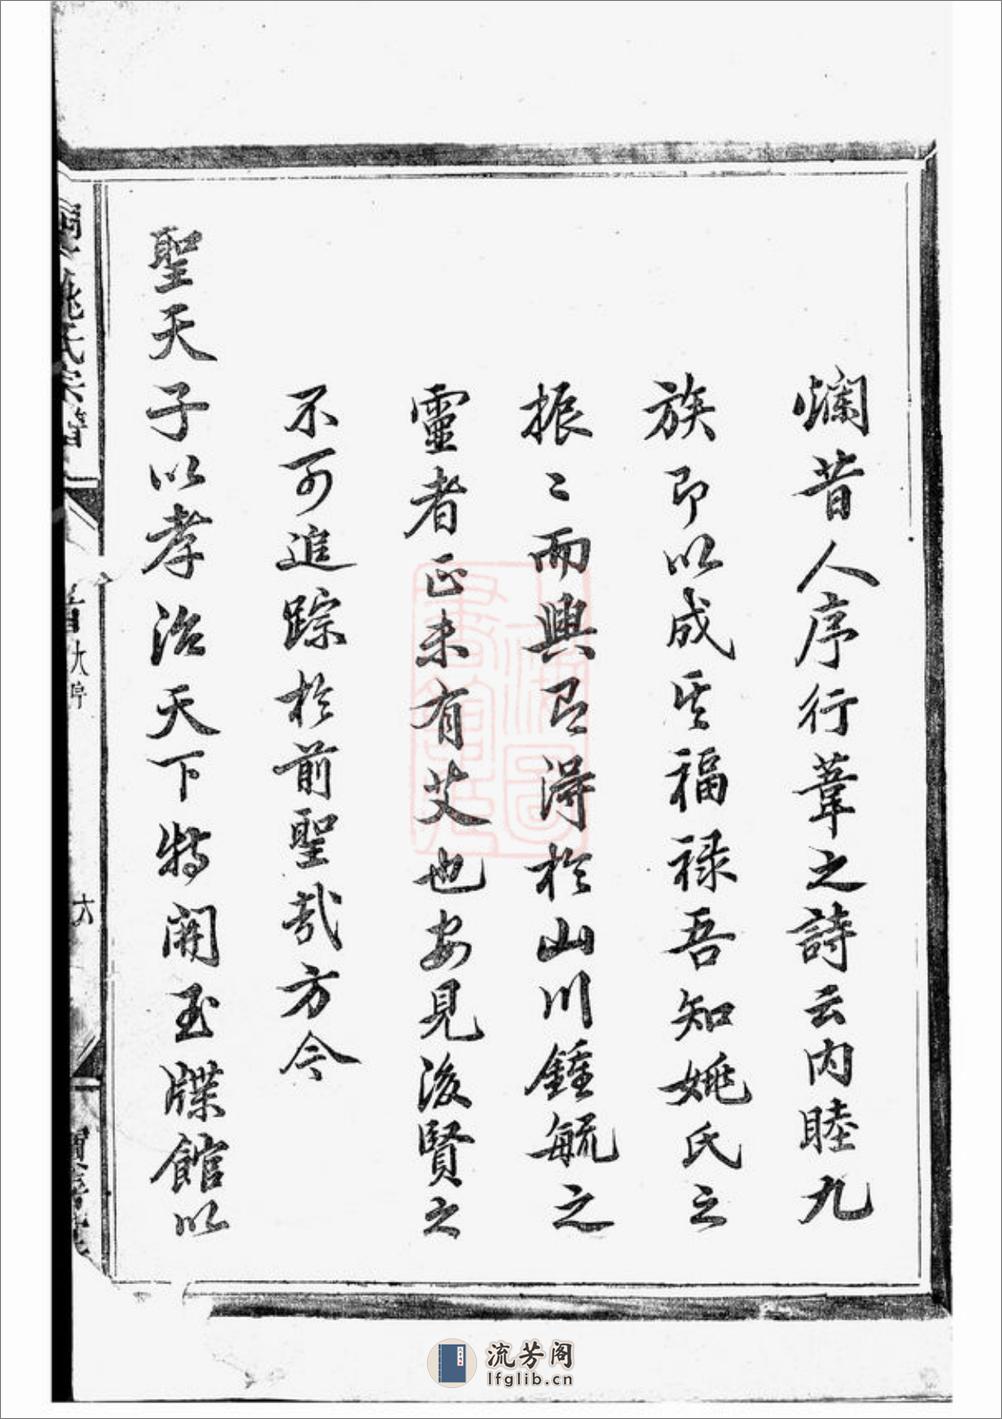 爛昔人序行葦之詩云内睦九
族即以成其福禄吾知姚氏之
振〻而興已得於山川鍾毓之
靈者正未有艾也安見後賢之
不可追踪於前聖哉方今
聖天子以孝治天下特開玉牒館以
姚氏宗譜
首
大序
六
流芳阁
lfglib.cn